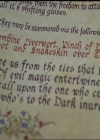 then the freedom to attac
it's shifting guises.
They may be summoned via the followi
ombine Liverwort, Winch of
oot and Snakeskin over
us from the ties that
Of evil magic entertwine
call upon the one who c
who's to the Dark inur